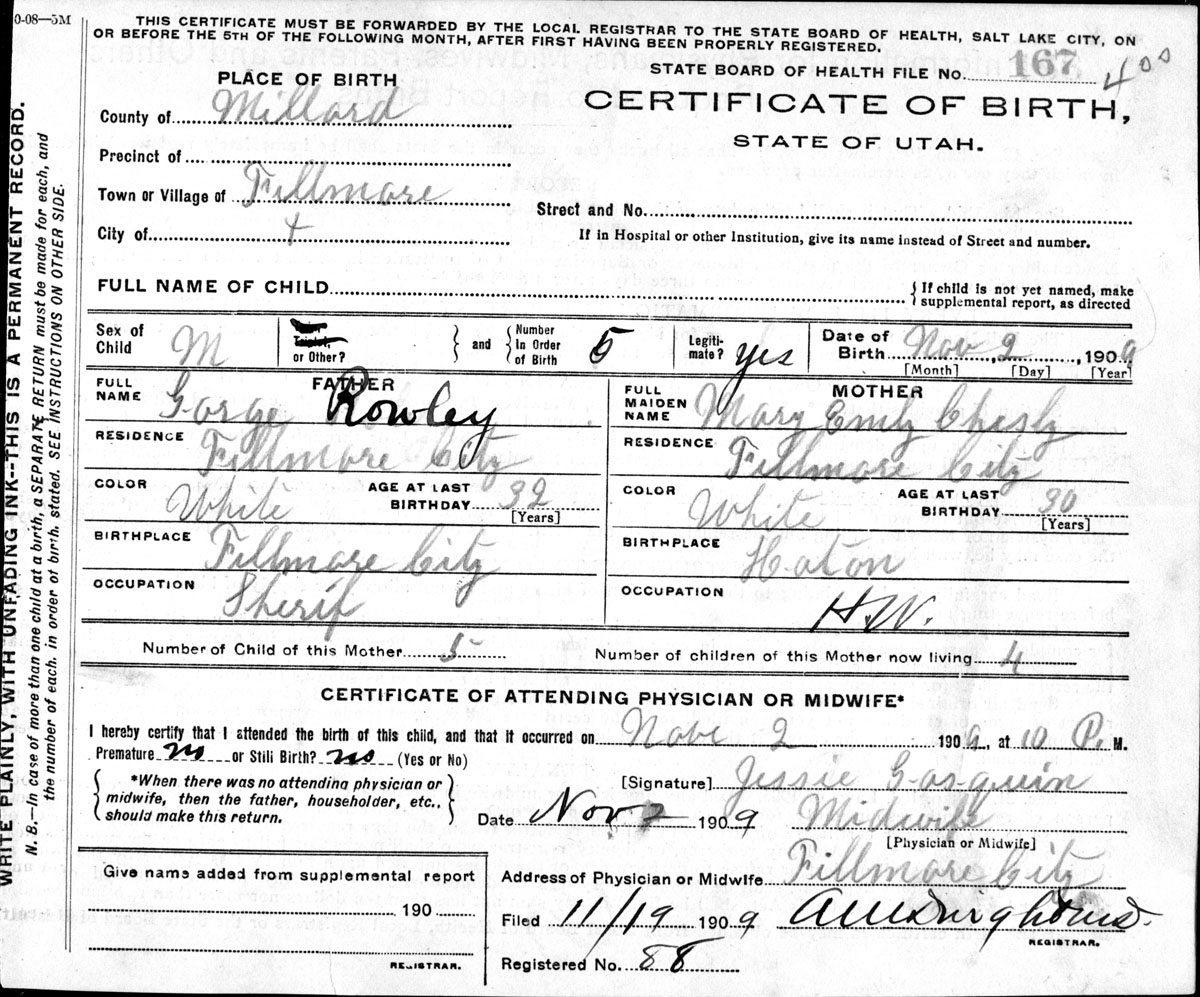 0-08—5M
THIS CERTIFICATE MUST BE FORWARDED BY THE LOCAL REGISTRAR TO THE STATE BOARD OF HEALTH, SALT LAKE CITY, ON
OR BEFORE THE 5TH OF THE FOLLOWING MONTH, AFTER FIRST HAVING BEEN PROPERLY REGISTERED.
WRITE PLAINLY, WITH UNFADING INK--THIS IS A PERMANENT RECORD.
N. B.—In case of more than one child at a birth, a SEPARATE RETURN must be made for each, and
the number of each, in order of birth, stated. SEE INSTRUCTIONS ON OTHER SIDE.
STATE BOARD OF HEALTH FILE NO. 167 400
CERTIFICATE OF BIRTH,
STATE OF UTAH.
PLACE OF BIRTH
County of Millard
Precinct of
Town or Village of Fillmore
City of
Street and No.
If in Hospital or other Institution, give its name instead of Street and number.
FULL NAME OF CHILD { If child is not yet named, make
supplemental report, as directed
Sex of Child M
Twin, Triplet, or Other? } and { Number In Order of Birth 5
Legiti-mate? yes
Date of Birth Nov 2, 1909
[Month] [Day] [Year]
FATHER
FULL NAME Gorge Rowley
RESIDENCE Fillmore City
COLOR White AGE AT LAST BIRTHDAY 32
[Years]
BIRTHPLACE Fillmore City
OCCUPATION Sherif
MOTHER
FULL MAIDEN NAME Mary Emly Chesly
RESIDENCE Fillmore City
COLOR White AGE AT LAST BIRTHDAY 30
[Years]
BIRTHPLACE Haton
OCCUPATION H.W.
Number of Child of this Mother 5 Number of children of this Mother now living 4
CERTIFICATE OF ATTENDING PHYSICIAN OR MIDWIFE*
I hereby certify that I attended the birth of this child, and that it occurred on Nove 2 1909, at 10 P. M.
Premature no or Still Birth? no (Yes or No)
{ *When there was no attending physician or
midwife, then the father, householder, etc.,
should make this return. }
[Signature] Jessie Gasquin
Date Nov 2 1909 Midwife
[Physician or Midwife]
Give name added from supplemental report
190
REGISTRAR.
Address of Physician or Midwife Fillmore City
Filed 11/19 1909
REGISTRAR.
Registered No. 88